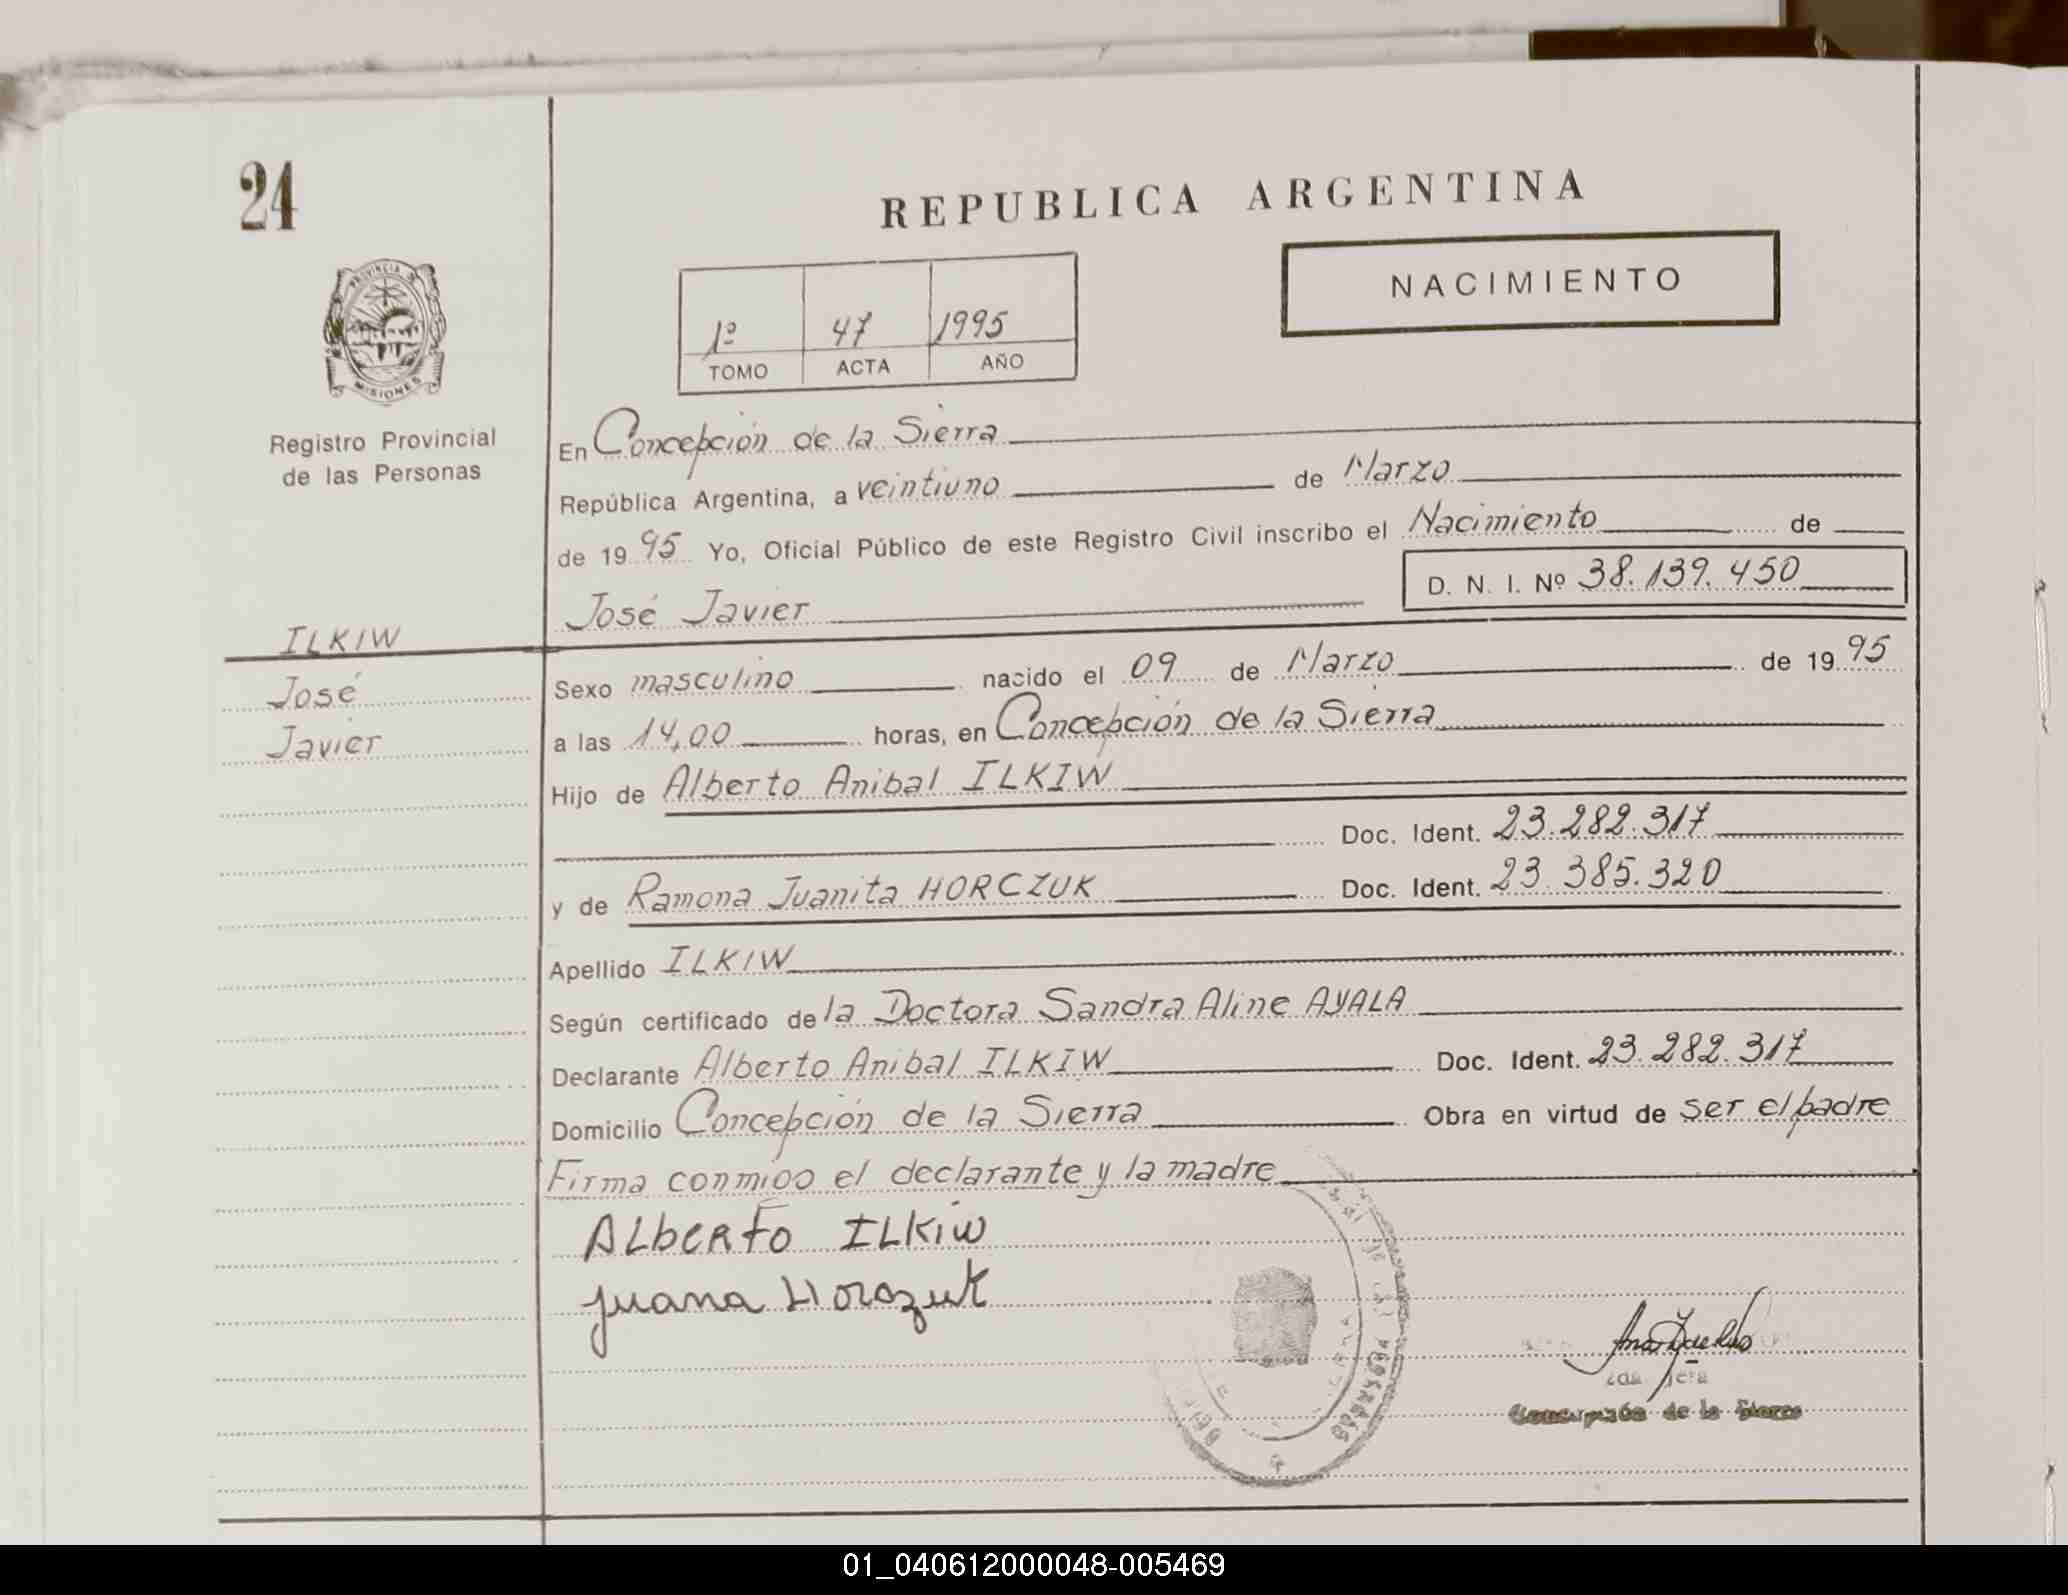 24
REPUBLICA ARGENTINA
NACIMIENTO
1º 47 1995
TOMO ACTA AÑO
PROVINCIA DE
MISIONES
Registro Provincial
de las Personas
En Concepción de la Sierra
República Argentina, a veintiuno de Marzo
de 1995 Yo, Oficial Público de este Registro Civil inscribo el Nacimiento de
D. N. I. Nº 38.139.450
José Javier
ILKIW
José
Javier
Sexo masculino nacido el 09 de Marzo de 1995
a las 14,00 horas, en Concepción de la Sierra
Hijo de Alberto Anibal ILKIW
Doc. Ident. 23.282.317
y de Ramona Juanita HORCZUK Doc. Ident. 23.385.320
Apellido ILKIW
Según certificado de la Doctora Sandra Aline AYALA
Declarante Alberto Anibal ILKIW Doc. Ident. 23.282.317
Domicilio Concepción de la Sierra Obra en virtud de ser el padre
Firma conmigo el declarante y la madre
ALbERTO ILKiW
Juana Horczuk
Concepción de la Sierra
01_040612000048-005469